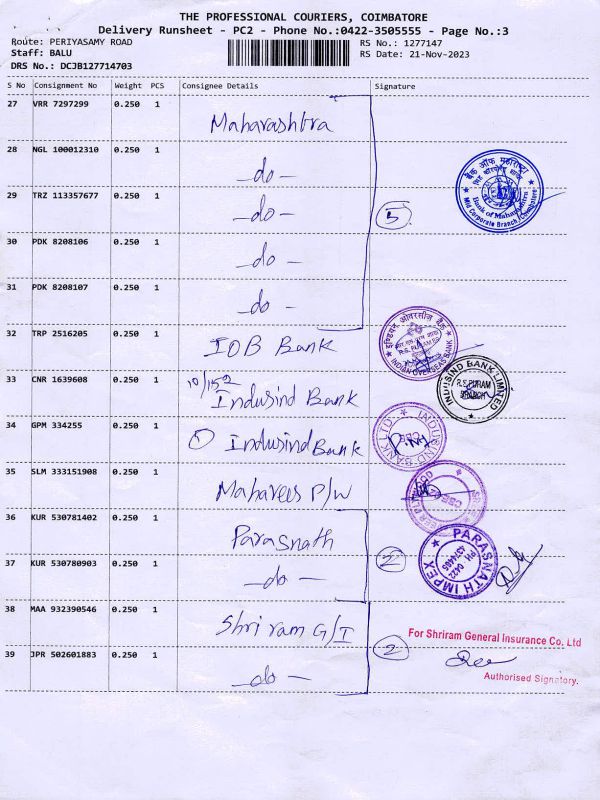 THE PROFESSIONAL COURIERS, COIMBATORE
Delivery Runsheet - PC2 - Phone No.:0422-3505555 - Page No.:3
Route: PERIYASAMY ROAD
RS No.: 1277147
Staff: BALU
RS Date: 21-Nov-2023
DRS No.: DCJB127714703
S No Consignment No Weight PCS Consignee Details Signature
27 VRR 7297299 0.250 1 Maharashtra
28 NGL 100012310 0.250 1 -do-
29 TRZ 113357677 0.250 1 -do-
5
बैंक ऑफ महाराष्ट्र
Bank of Maharashtra
Mid Corporate Branch, Coimbatore
30 PDK 8208106 0.250 1 do -
31 PDK 8208107 0.250 1 do -
32 TRP 2516205 0.250 1 IOB Bank
इण्डियन ओवरसीज़ बैंक
R.S. PURAM
INDIAN OVERSEAS BANK
33 CNR 1639608 0.250 1 Indusind Bank
INDUSIND BANK LIMITED
R.S. PURAM
BRANCH
34 GPM 334255 0.250 1 Indusind Bank
INDUSIND BANK LTD
35 SLM 333151908 0.250 1 Mahaveer P/W
36 KUR 530781402 0.250 1 Parasnath
2
PARASNATH IMPEX
PH: 0422
37 KUR 530780903 0.250 1 -do-
38 MAA 932390546 0.250 1 Shriram G/I
2
For Shriram General Insurance Co. Ltd
39 JPR 502601883 0.250 1 -do-
Authorised Signatory.